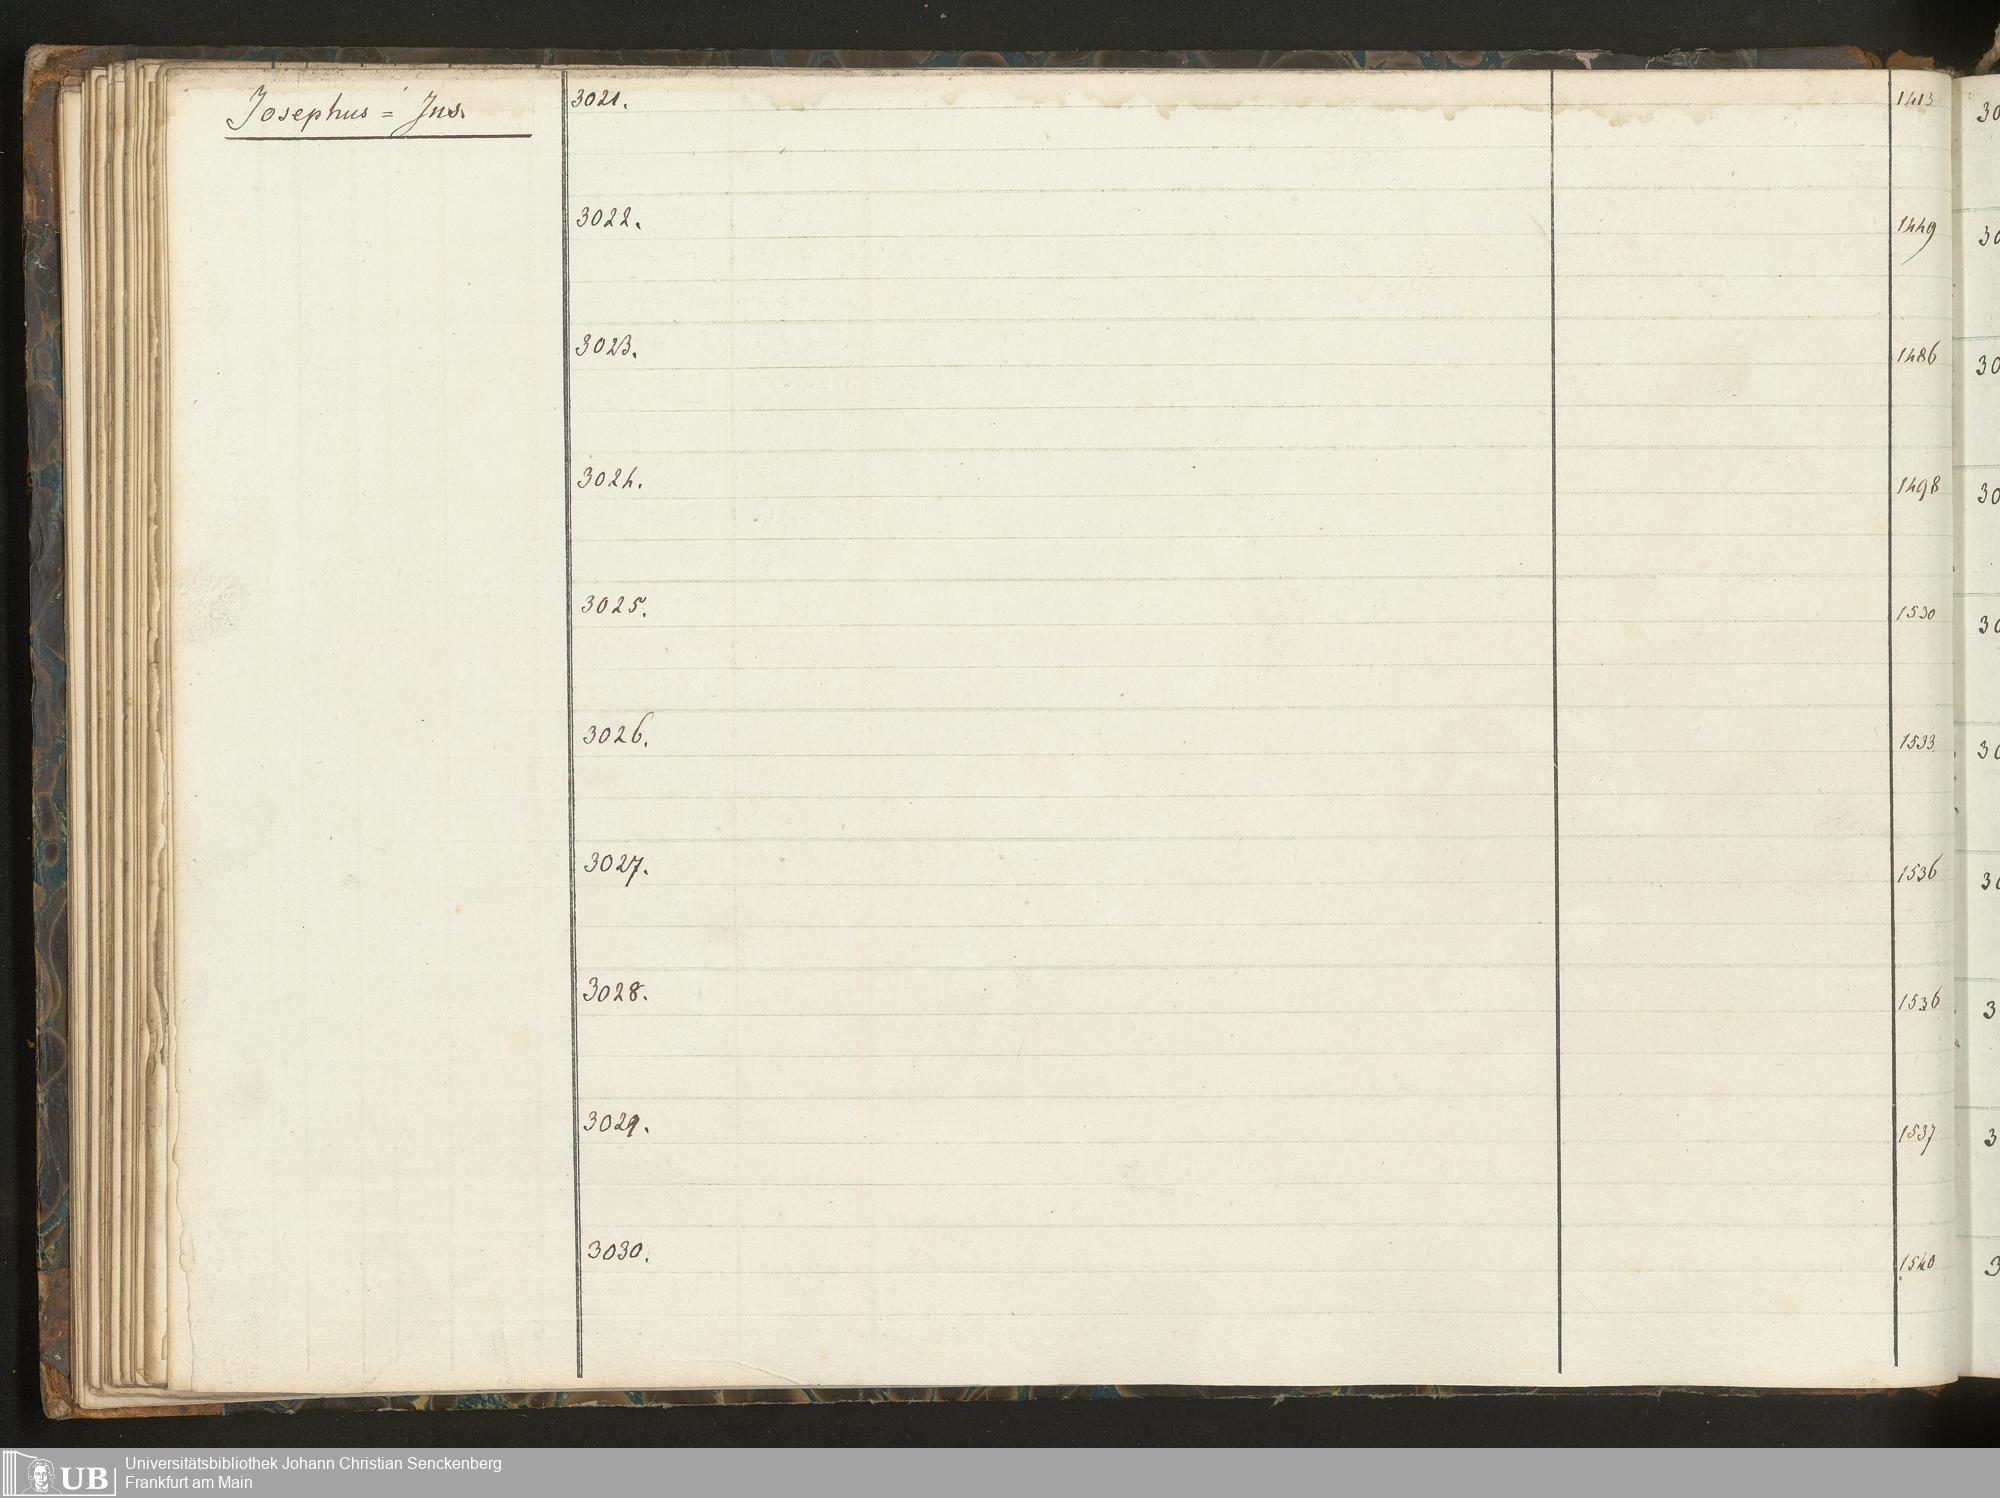 Josephus = Jus.
3021. 1413
3022. 1449
3023. 1486
3024. 1498
3025. 1530
3026. 1533
3027. 1536
3028. 1536
3029. 1537
3030. 1540
UB
Universitätsbibliothek Johann Christian Senckenberg
Frankfurt am Main